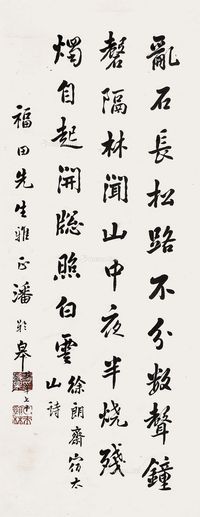 亂石長松路不分數聲鐘
磬隔林聞山中夜半燒殘
燭自起開牎照白雲
徐朗齋宿太
山詩
福田先生雅正潘齡皋